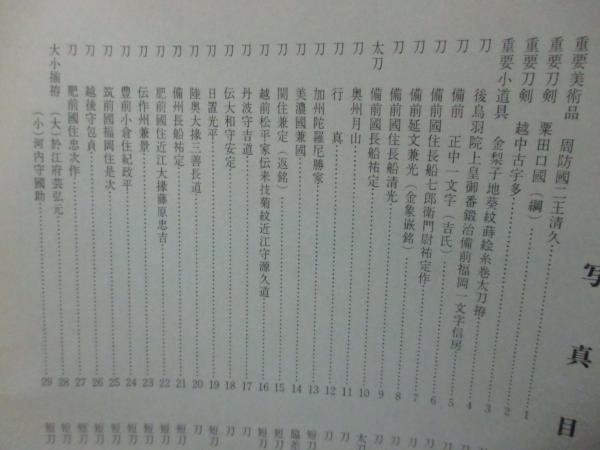 写真目
重要美術品 周防國二王清久……1
重要刀剣 粟田口國(綱)……2
重要刀剣 越中古宇多……3
重要小道具 金梨子地葵紋蒔絵糸巻太刀拵……4
刀 後鳥羽院上皇御番鍛冶備前福岡一文字信房……5
刀 備前 正中一文字(吉氏)……6
刀 備前國住長船七郎衛門尉祐定作……7
刀 備前延文兼光(金象嵌銘)……8
刀 備前國住長船清光……9
太刀 備前國長船祐定……10
刀 奥州月山……11
刀 行真……12
刀 加州陀羅尼勝家……13
刀 美濃國兼國……14
刀 関住兼定(返銘)……15
刀 越前松平家伝来技菊紋近江守源久道……16
刀 丹波守吉道……17
刀 伝大和守安定……18
刀 日置光平……19
刀 陸奥大掾三善長道……20
刀 備州長船祐定……21
刀 肥前國住近江大掾藤原忠吉……22
刀 伝作州兼景……23
刀 豊前小倉住紀政平……24
刀 筑前國福岡住是次……25
刀 越後守包貞……26
刀 肥前國住忠次作……27
大小揃拵 (大)於江府芸弘元……28
(小)河内守國助……29
太刀
刀
刀
脇差
短刀
刀
短刀
短刀
刀
刀
短刀
刀
短刀
短刀
短刀
短刀
短刀
短刀